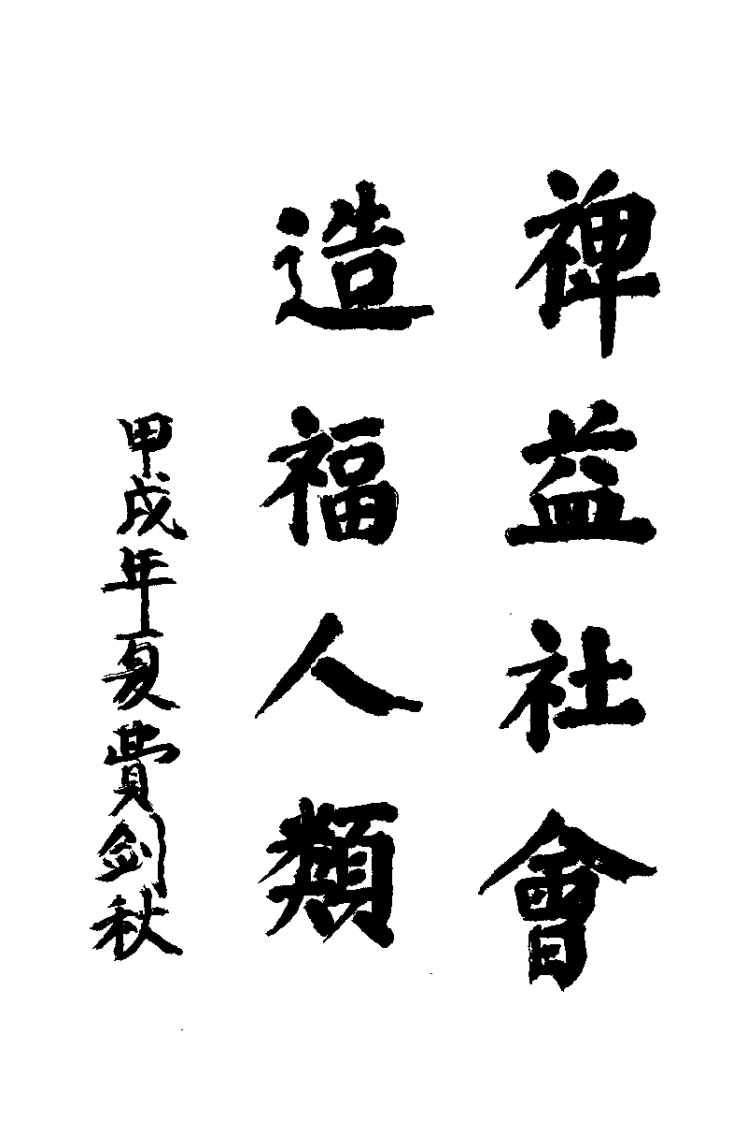 裨益社會
造福人類
甲戌年夏費剑秋